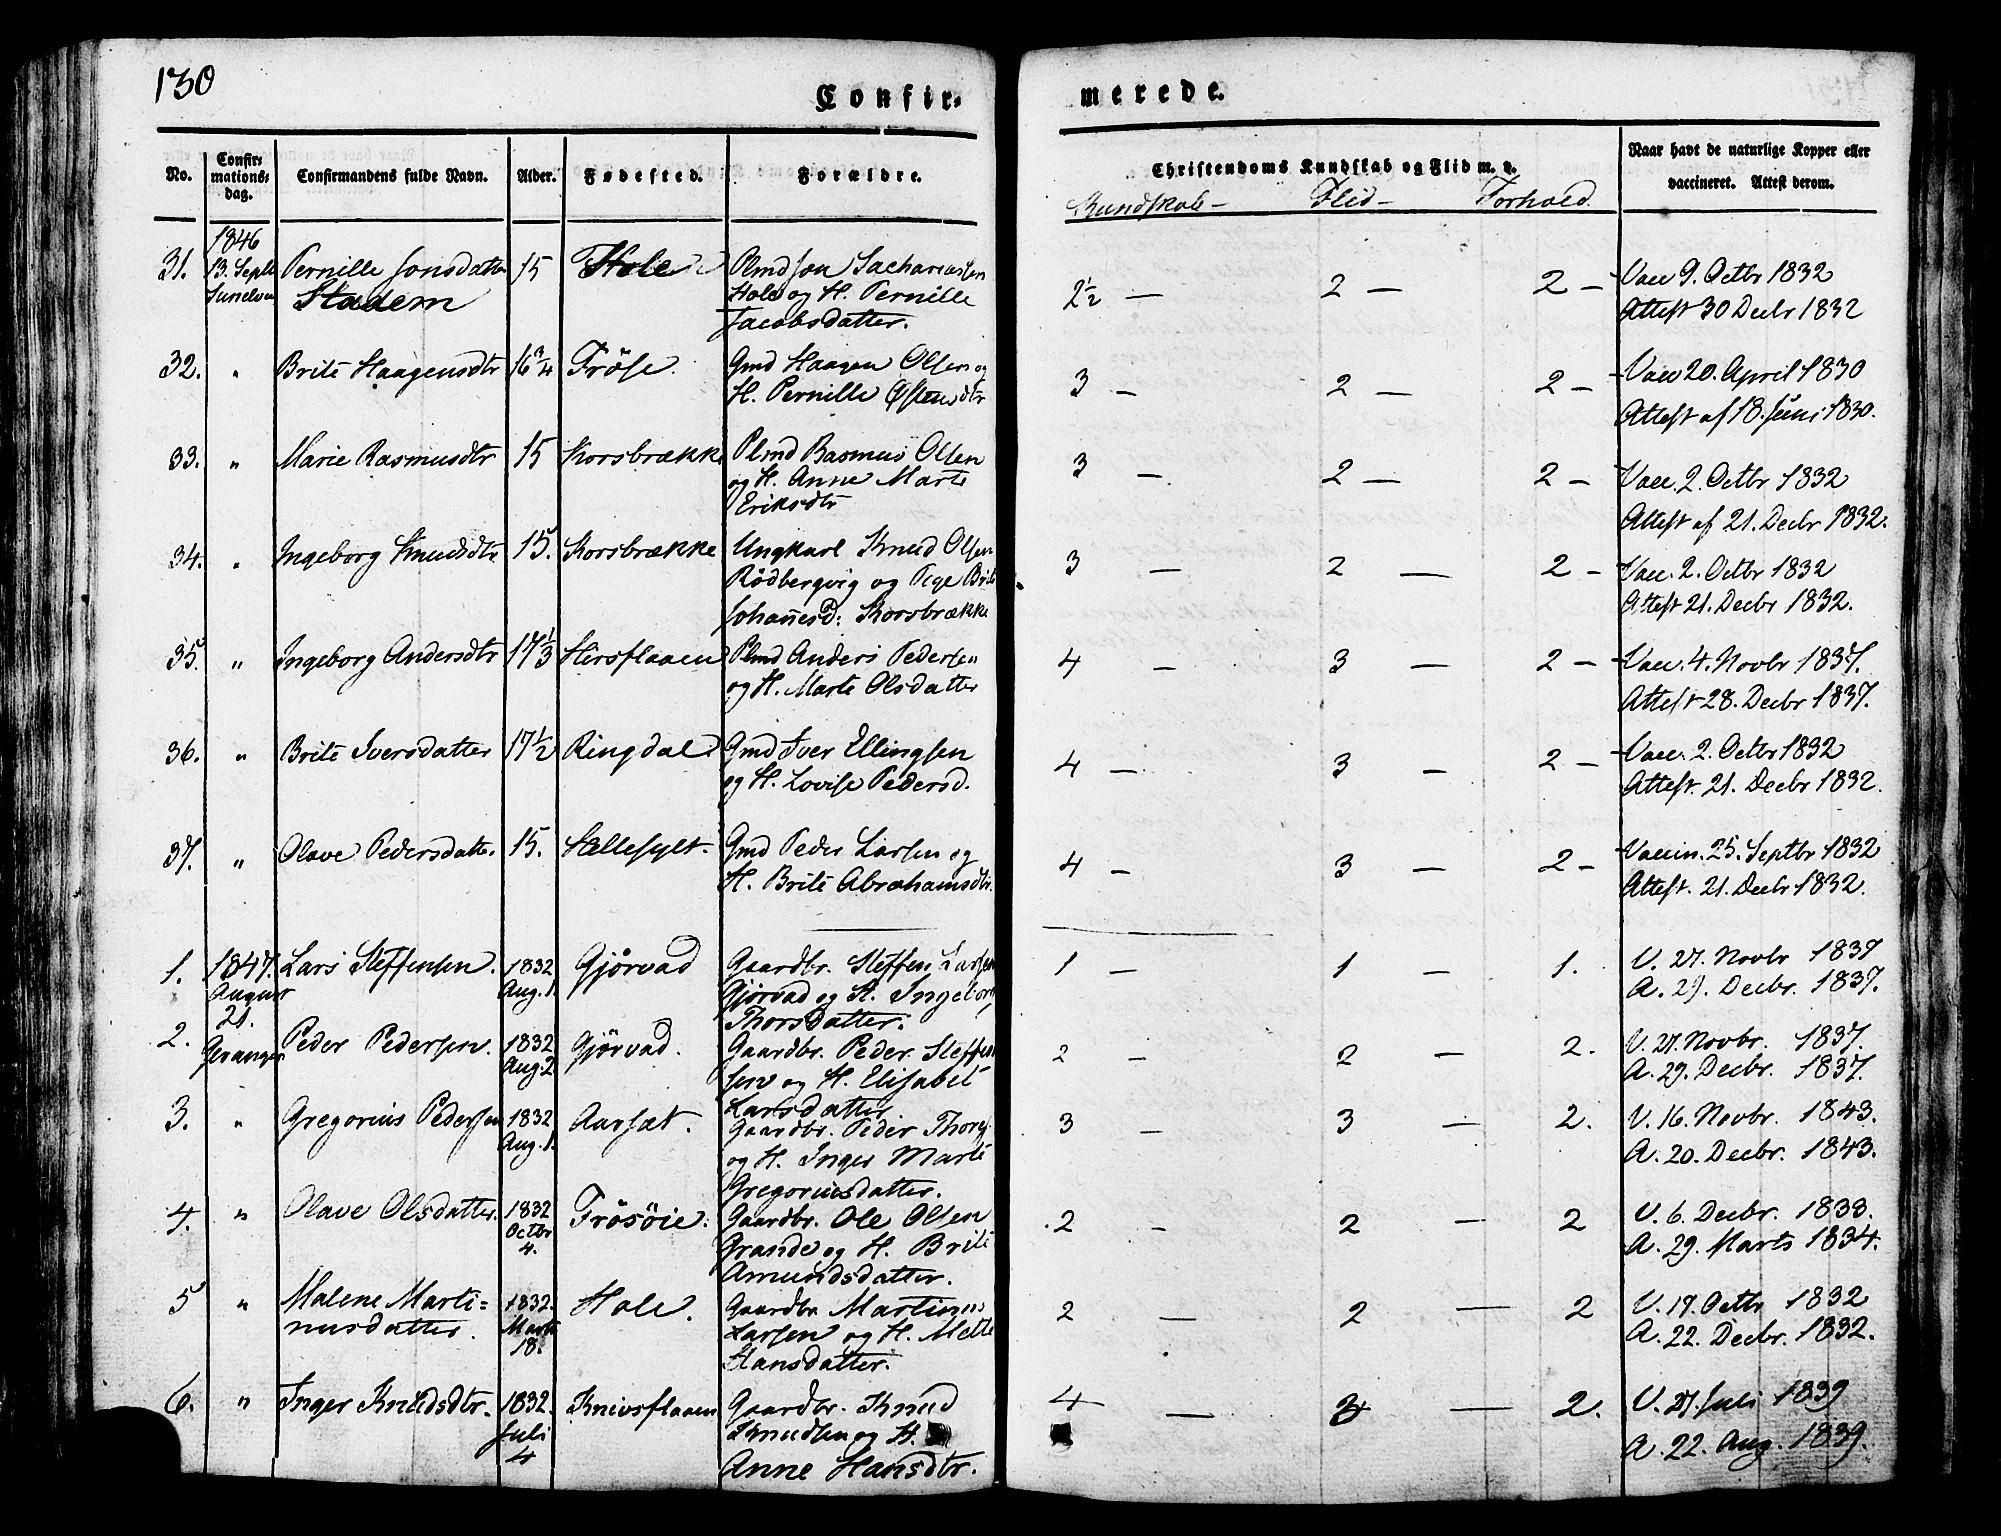 130
Confir-
merede.
No.
Confir-
mations-
dag.
Confirmandens fulde Navn.
Alder.
Fødested.
Forældre.
Christendoms Kundskab og Flid m. v.
Naar havt de naturlige Kopper eller
vaccineret. Attest derom.
Kundskab - Flid - Forhold.
1846
31. 13. Septb Pernille Jonsdatter 15 Hole Plmd Jon Sachariassen 2½ — 2 — 2 — Vacc 9. Octbr 1832
Sunelven Stadem Hole og H. Pernille Attest 30 Decbr 1832
Jacobsdatter.
32. " Brite Haagensdtr 16¾ Frøse. Gmd Haagen Olsen og 3 — 2 — 2 — Vacc 20. April 1830
H. Pernille Østensdtr Attest af 18. Juni 1830.
33. " Marie Rasmusdtr 15 Korsbrække Plmd Rasmus Olsen 3 — 2 — 2 — Vacc. 2. Octbr 1832
og H. Anne Marte Attest af 21. Decbr 1832.
Eriksdtr
34. " Ingeborg Knudsdtr 15. Korsbrække Ungkarl Knud Olsen 3 — 2 — 2 — Vacc. 2. Octbr 1832
Rødbergvig og Pige Brite Attest 21. Decbr 1832.
Johannesd: Korsbrække
35. " Ingeborg Andersdtr 17⅓ Hirsflaaen Plmd Anders Pedersen 4 — 3 — 2 — Vacc. 4. Novbr 1837.
og H. Marte Olsdatter Attest 28. Decbr 1837.
36. " Brite Iversdatter 17½ Ringdal Gmd Iver Ellingsen 4 — 3 — 2 — Vacc. 2. Octbr 1832
og H. Lovise Pedersd. Attest. 21. Decbr 1832.
37. " Olave Pedersdatter 15. Hellesylt. Gmd Peder Larsen og 4 — 3 — 2 — Vaccin. 25. Septbr 1832
H. Brite Abrahamsdtr. Attest. 21. Decbr 1832.
1. 1847. Lars Steffensen. 1832 Gjørvad Gaardbr. Steffen Larsen 1 — 1 — 1. V. 27. Novbr 1837
August Aug. 1. Gjørvad og H. Ingeborg A. 29. Decbr. 1837.
21. Thorsdatter.
2. Geranger Peder Pedersen. 1832 Gjørvad. Gaardbr. Peder Steffen 2 — 2 — 2. V. 27. Novbr. 1837.
Aug. 2 sen og H. Elisabet A. 29. Decbr. 1837.
Larsdatter
3. " Gregorius Pedersen 1832 Aarsæt. Gaardbr. Peder Thorg. 3 — 3 — 2. V. 16. Novbr. 1843.
Aug. 1. og H. Inger Marte A. 20. Decbr. 1843.
Gregoriusdatter.
4. " Olave Olsdatter. 1832 Frøsøie. Gaardbr. Ole Olsen 2 — 2 — 2 V. 6. Decbr. 1833.
Octbr Grande og H. Brite A. 29. Marts 1834.
4. Amundsdatter.
5 " Malene Marti= 1832. Hole. Gaardbr Martinus 2 — 2 — 2 V. 19. Octbr 1832
nusdatter. Marts Larsen og H. Mette A. 22. Decbr. 1832.
18. Hansdatter.
6. " Inger Knudsdtr. 1832. Knivsflaaen Gaardbr. Knud 4 — 3 — 2. V. 27. Juli 1839
Juli Knudsen og H. A. 22. Aug. 1839.
4 Anne Hansdtr.